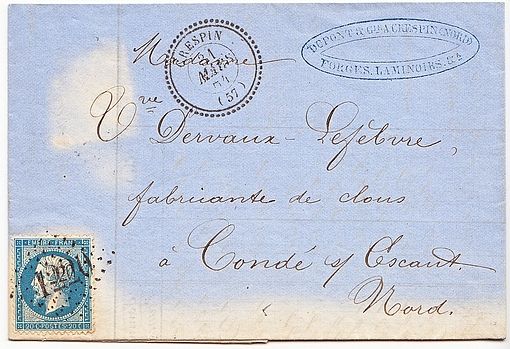 CRESPIN
21
MARS
(57)
DUPONT & CIE A CRESPIN (NORD)
FORGES, LAMINOIRS, &A
Madame
Vve Dervaux-Lefèbvre,
fabricante de clous
à Condé s/ Escaut.
Nord.
EMPIRE FRANC
20 C POSTES 20 C